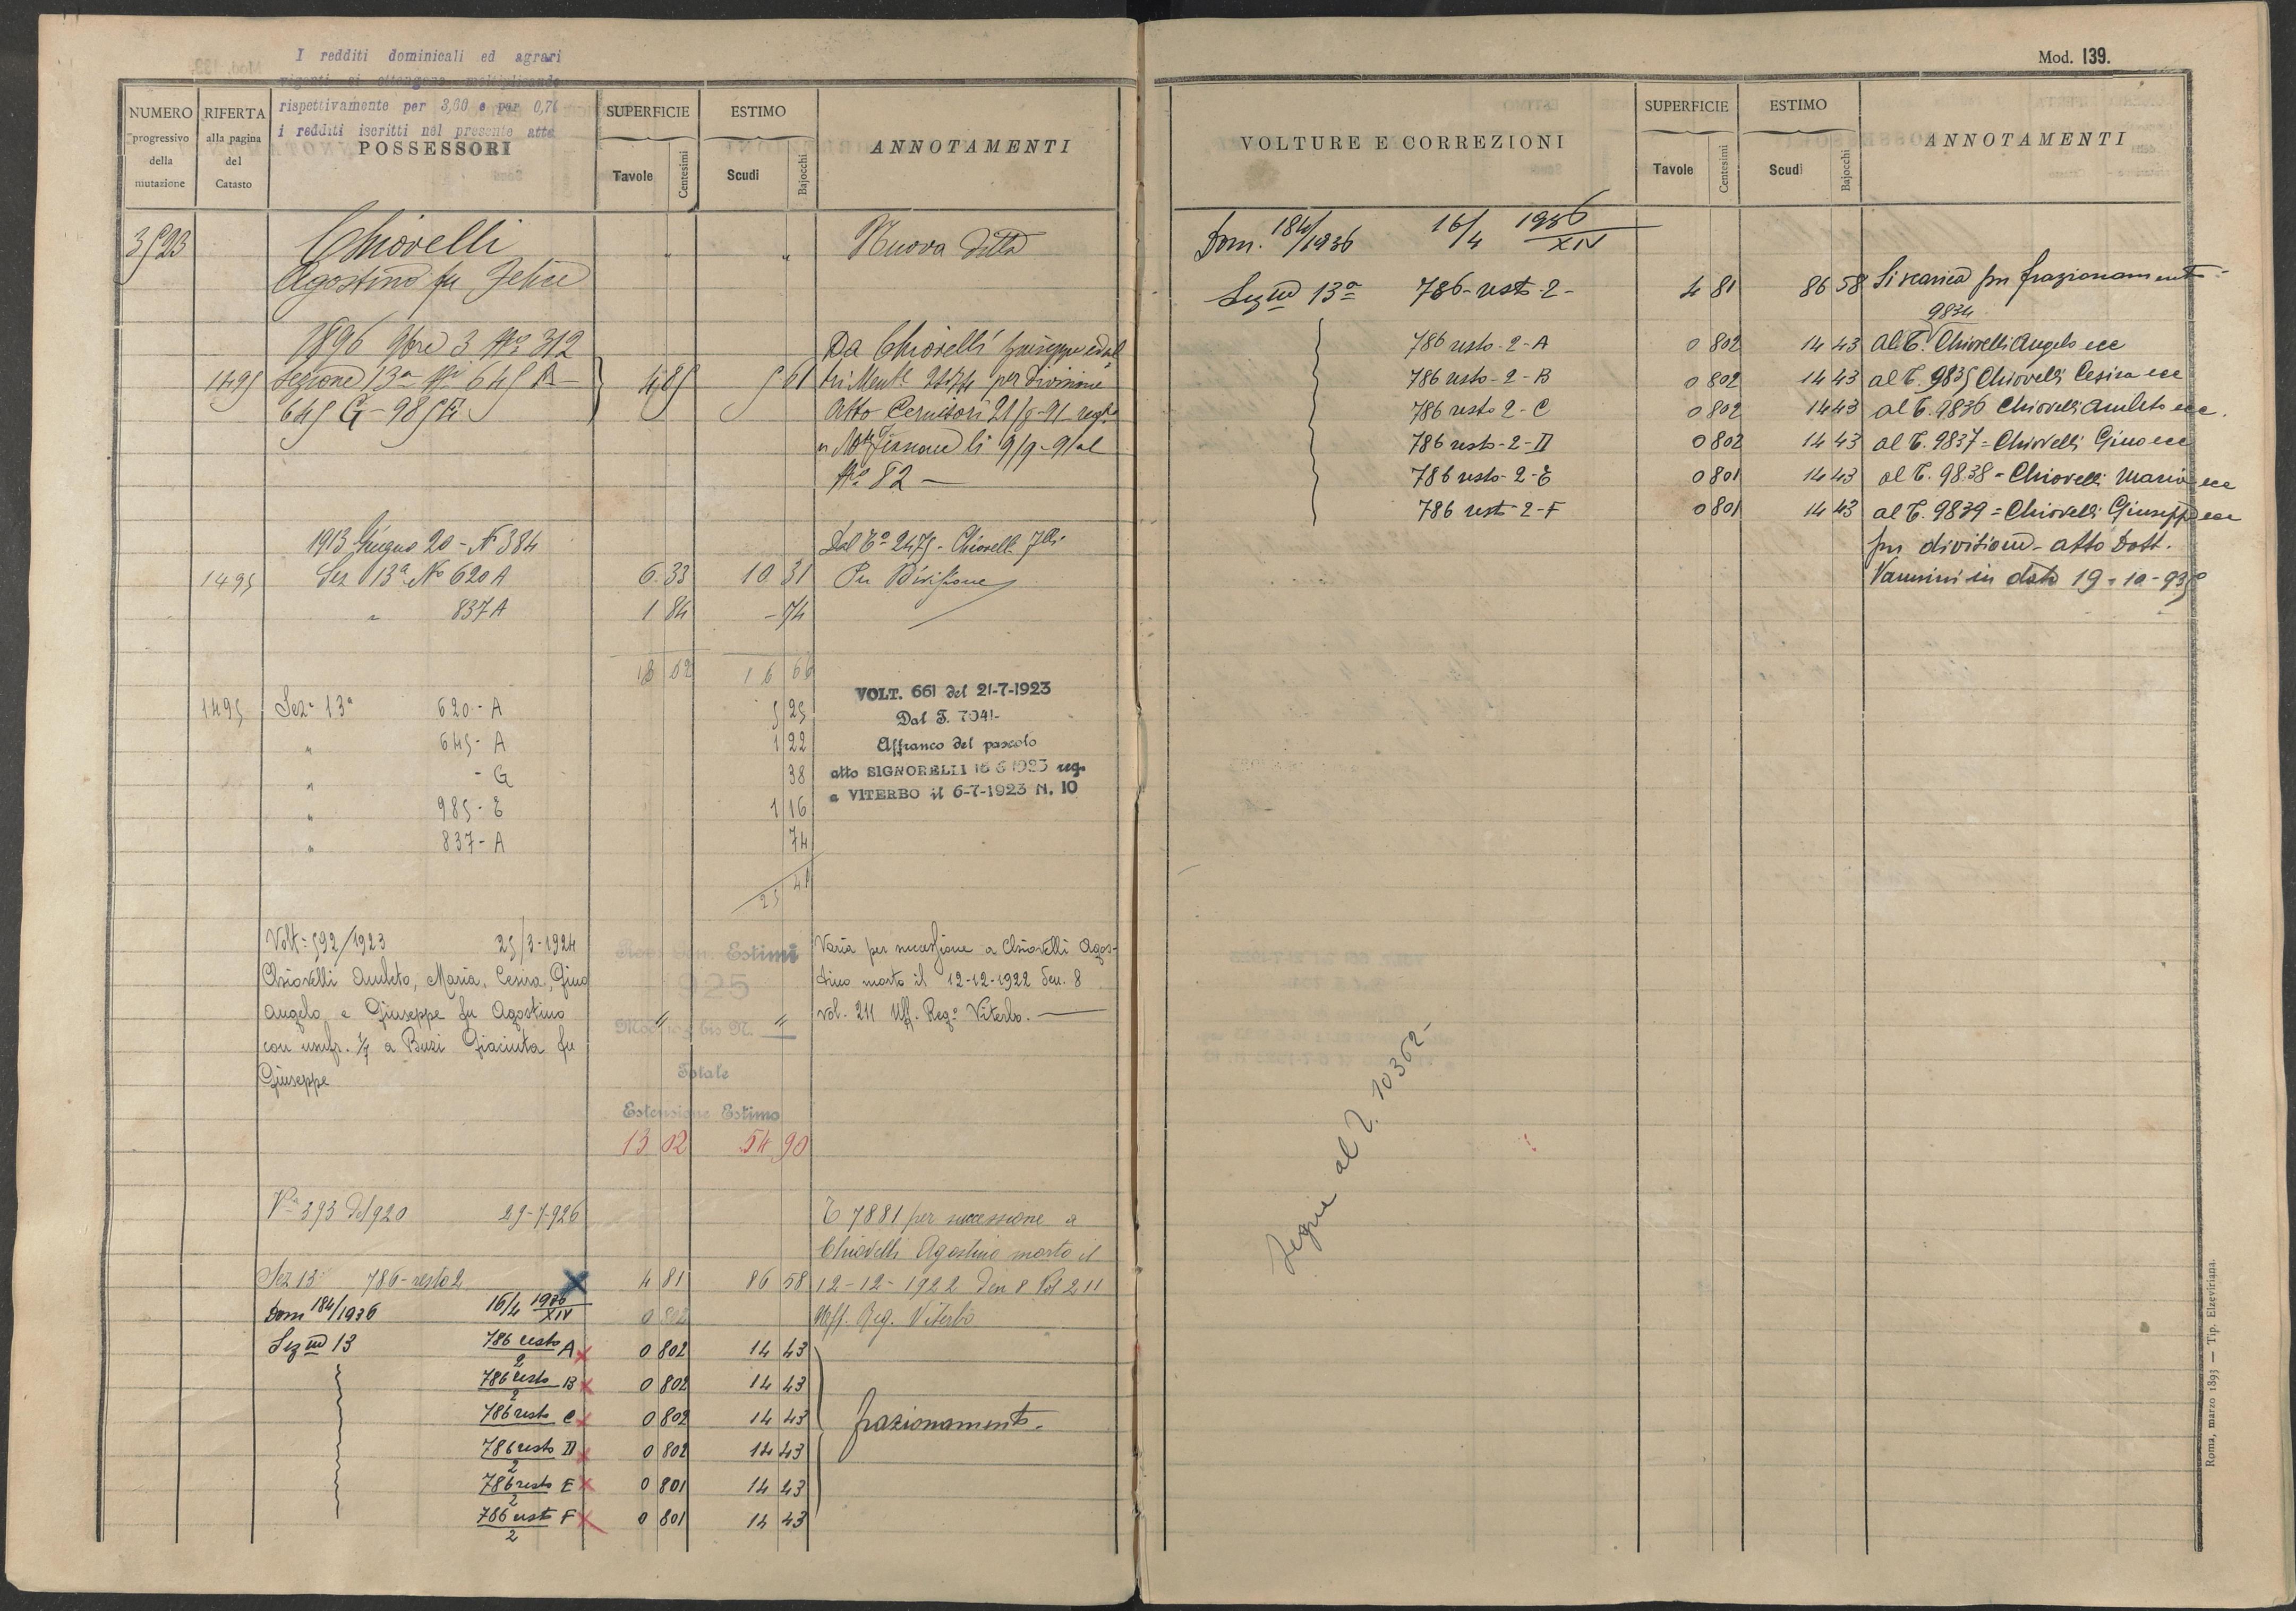 I redditi dominicali ed agrari
vigenti si ottengono moltiplicando
rispettivamente per 3,60 e per 0,70
i redditi iscritti nel presente atto
NUMERO progressivo della mutazione
RIFERTA alla pagina del Catasto
POSSESSORI
SUPERFICIE
Tavole Centesimi
ESTIMO
Scudi Bajocchi
ANNOTAMENTI
3593 Chiovelli " " Nuova Ditta
Agostino fu Felice
1896 9bre 3 No 312 Da Chiovelli Giuseppe ed al
1495 Sezione 13a Ni 645 A 4 85 5 61 tri Ment. 2475 per divisione
645 G - 985 E Atto 21/8-91 reg.
li 9/9-91 al
No 82 —
1913 Giugno 20 - N 384 Dal To 2475 - Chiovelli flli
1495 Sez 13a No 620 A 6.33 10 31 Per Divisione
" 837 A 1 84 - 74
13 02 16 66
1495 Sez. 13a 620 - A 5 25
" 645 - A 1 22
" - G 38
" 985 - E 1 16
" 837 - A 74
25 41
VOLT. 661 del 21-7-1923
Dal T. 7041-
Affranco del pascolo
atto SIGNORELLI 16 6 1923 reg.
a VITERBO il 6-7-1923 N. 10
Volt: 592/1923 25/3-1924 Varia per successione a Chiovelli Agos-
Chiovelli Amleto, Maria, Cesira, Gino tino morto il 12-12-1922 Den. 8
Angelo e Giuseppe fu Agostino " " vol. 211 Uff. Reg.o Viterbo. —
con usufr. a Buzi Giacinta fu
Giuseppe
Estimi
1925
Mod bis N.
Totale
Estensione Estimo
13 02 54 90
Va 393 del 920 29-7-926 T 7881 per successione a
Chiovelli Agostino morto il
Sez 13 786 - resto 2 4 81 86 58 12-12-1922 Den 8 Vol 211
Dom 184/1936 16/4 1936 XIV 0 802 Uff. Reg. Viterbo
Sezne 13 786 resto/2 A 0 802 14 43
786 resto/2 B 0 802 14 43
786 resto/2 C 0 802 14 43 frazionamento-
786 resto/2 D 0 802 14 43
786 resto/2 E 0 801 14 43
786 resto/2 F 0 801 14 43
Mod. 139.
VOLTURE E CORREZIONI
SUPERFICIE
Tavole Centesimi
ESTIMO
Scudi Bajocchi
ANNOTAMENTI
Dom. 184/1936 16/4 1936 XIV
Sezne 13a 786 - resto - 2 - 4 81 86 58 Si scarica per frazionamento -
9834
786 resto - 2 - A 0 802 14 43 Al T. Chiovelli Angelo ecc
786 resto - 2 - B 0 802 14 43 al T. 9835 Chiovelli Cesira ecc
786 resto 2 - C 0 802 14 43 al T. 9836 Chiovelli Amleto ecc.
786 resto - 2 - D 0 802 14 43 al T. 9837 = Chiovelli Gino ecc
786 resto - 2 - E 0 801 14 43 al T. 9838 - Chiovelli Maria ecc
786 resto - 2 - F 0 801 14 43 al T. 9839 = Chiovelli Giuseppe ecc
per divisione - atto Dott.
Vannini in data 19-10-935
Segue al T. 10362-
Roma, marzo 1893 — Tip. Elzeviriana.